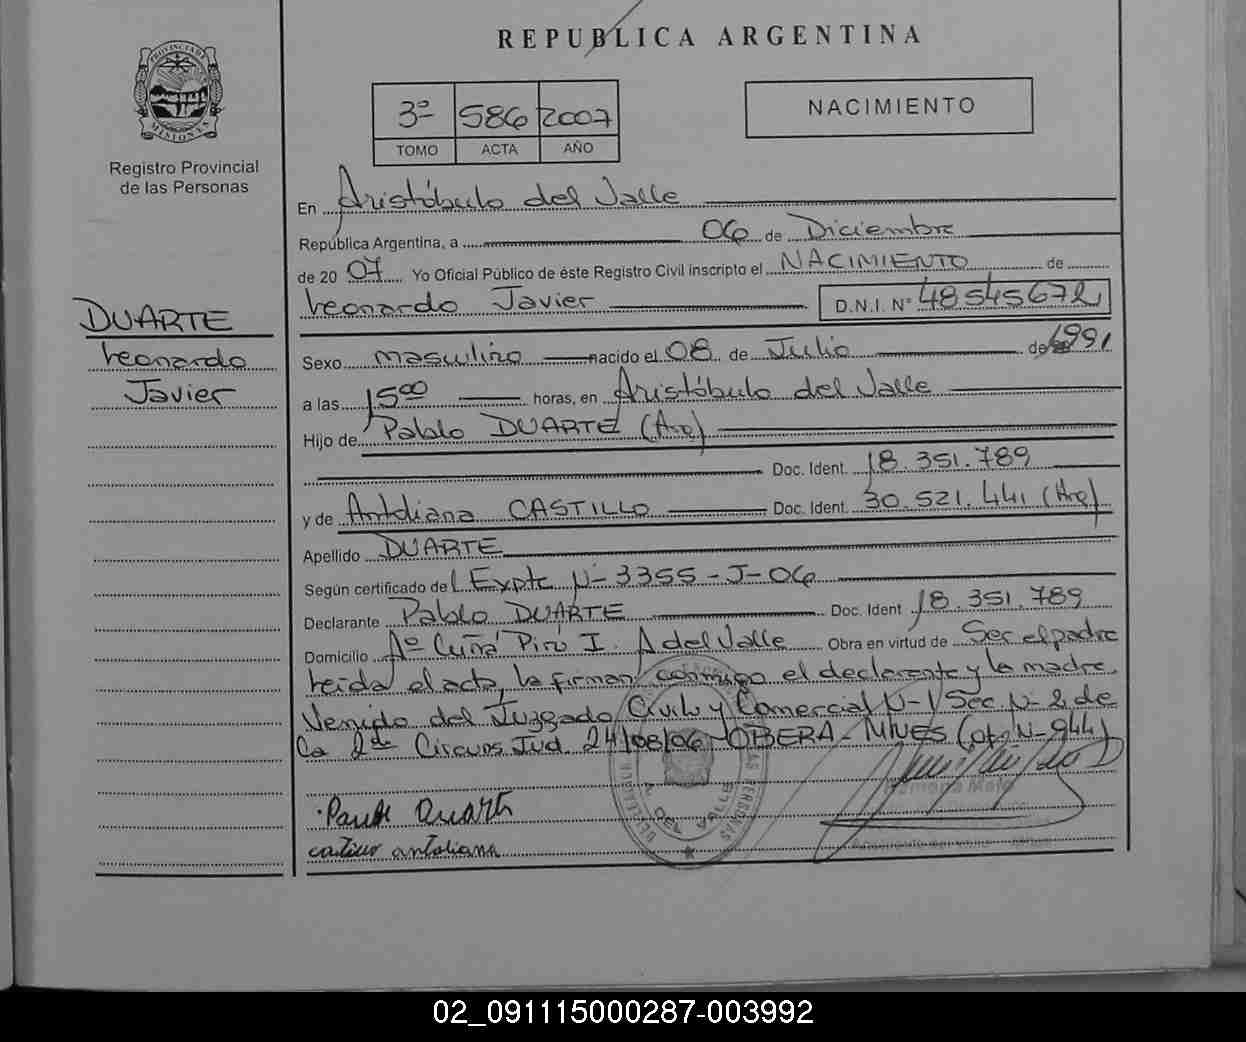 REPUBLICA ARGENTINA
PROVINCIA DE MISIONES
Registro Provincial
de las Personas
3º 586 2007
TOMO ACTA AÑO
NACIMIENTO
En Aristóbulo del Valle
República Argentina, a 06 de Diciembre
de 20 07 Yo Oficial Público de éste Registro Civil inscripto el NACIMIENTO de
Leonardo Javier D.N.I. Nº 48545672
DUARTE
Leonardo
Javier
Sexo masculino nacido el 08 de Julio de 1991
a las 15 00 horas, en Aristóbulo del Valle
Hijo de Pablo DUARTE (Arg)
Doc. Ident. 18.351.789
y de Antoliana CASTILLO Doc. Ident. 30.521.441 (Arg)
Apellido DUARTE
Según certificado de l Expte Nº 3355-J-06
Declarante Pablo DUARTE Doc. Ident 18.351.789
Domicilio Aº Cuñá Pirú I. A del Valle Obra en virtud de Ser el padre
leida el acta, la firman conmigo el declarante y la madre.
Venido del Juzgado Civil y Comercial Nº 1 Sec. Nº 2 de
la 2da Circuns Jud. 24/08/06 OBERA-MNES (Of. Nº 944)
Duarte
antoliana
A. DEL VALLE
02_091115000287-003992